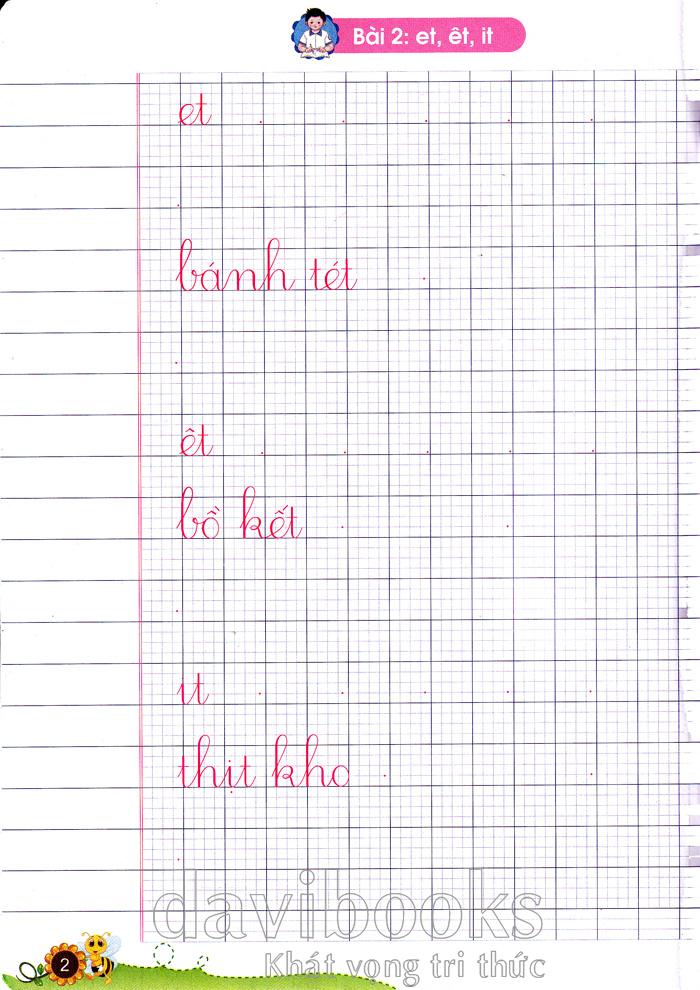 Bài 2: et, êt, it
et
bánh tét
êt
bồ kết
it
thịt kho
davibooks
Khát vọng tri thức
2